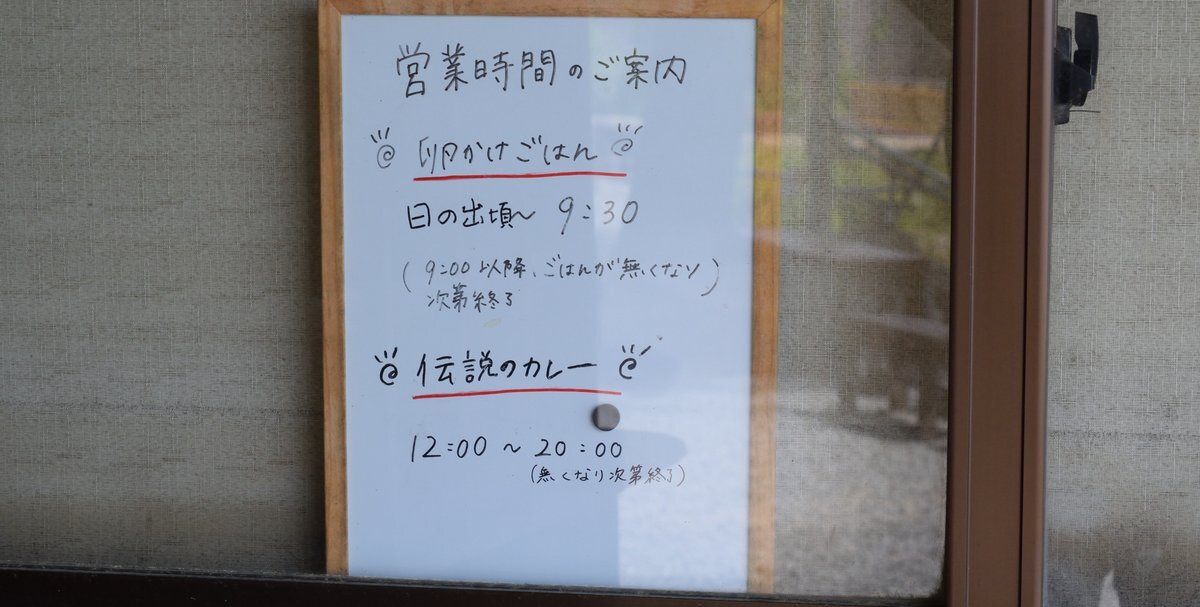 営業時間のご案内
卵かけごはん
日の出頃〜 9:30
(9:00以降、ごはんが無くなり)
次第終了
伝説のカレー
12:00 〜 20:00
(無くなり次第終了)